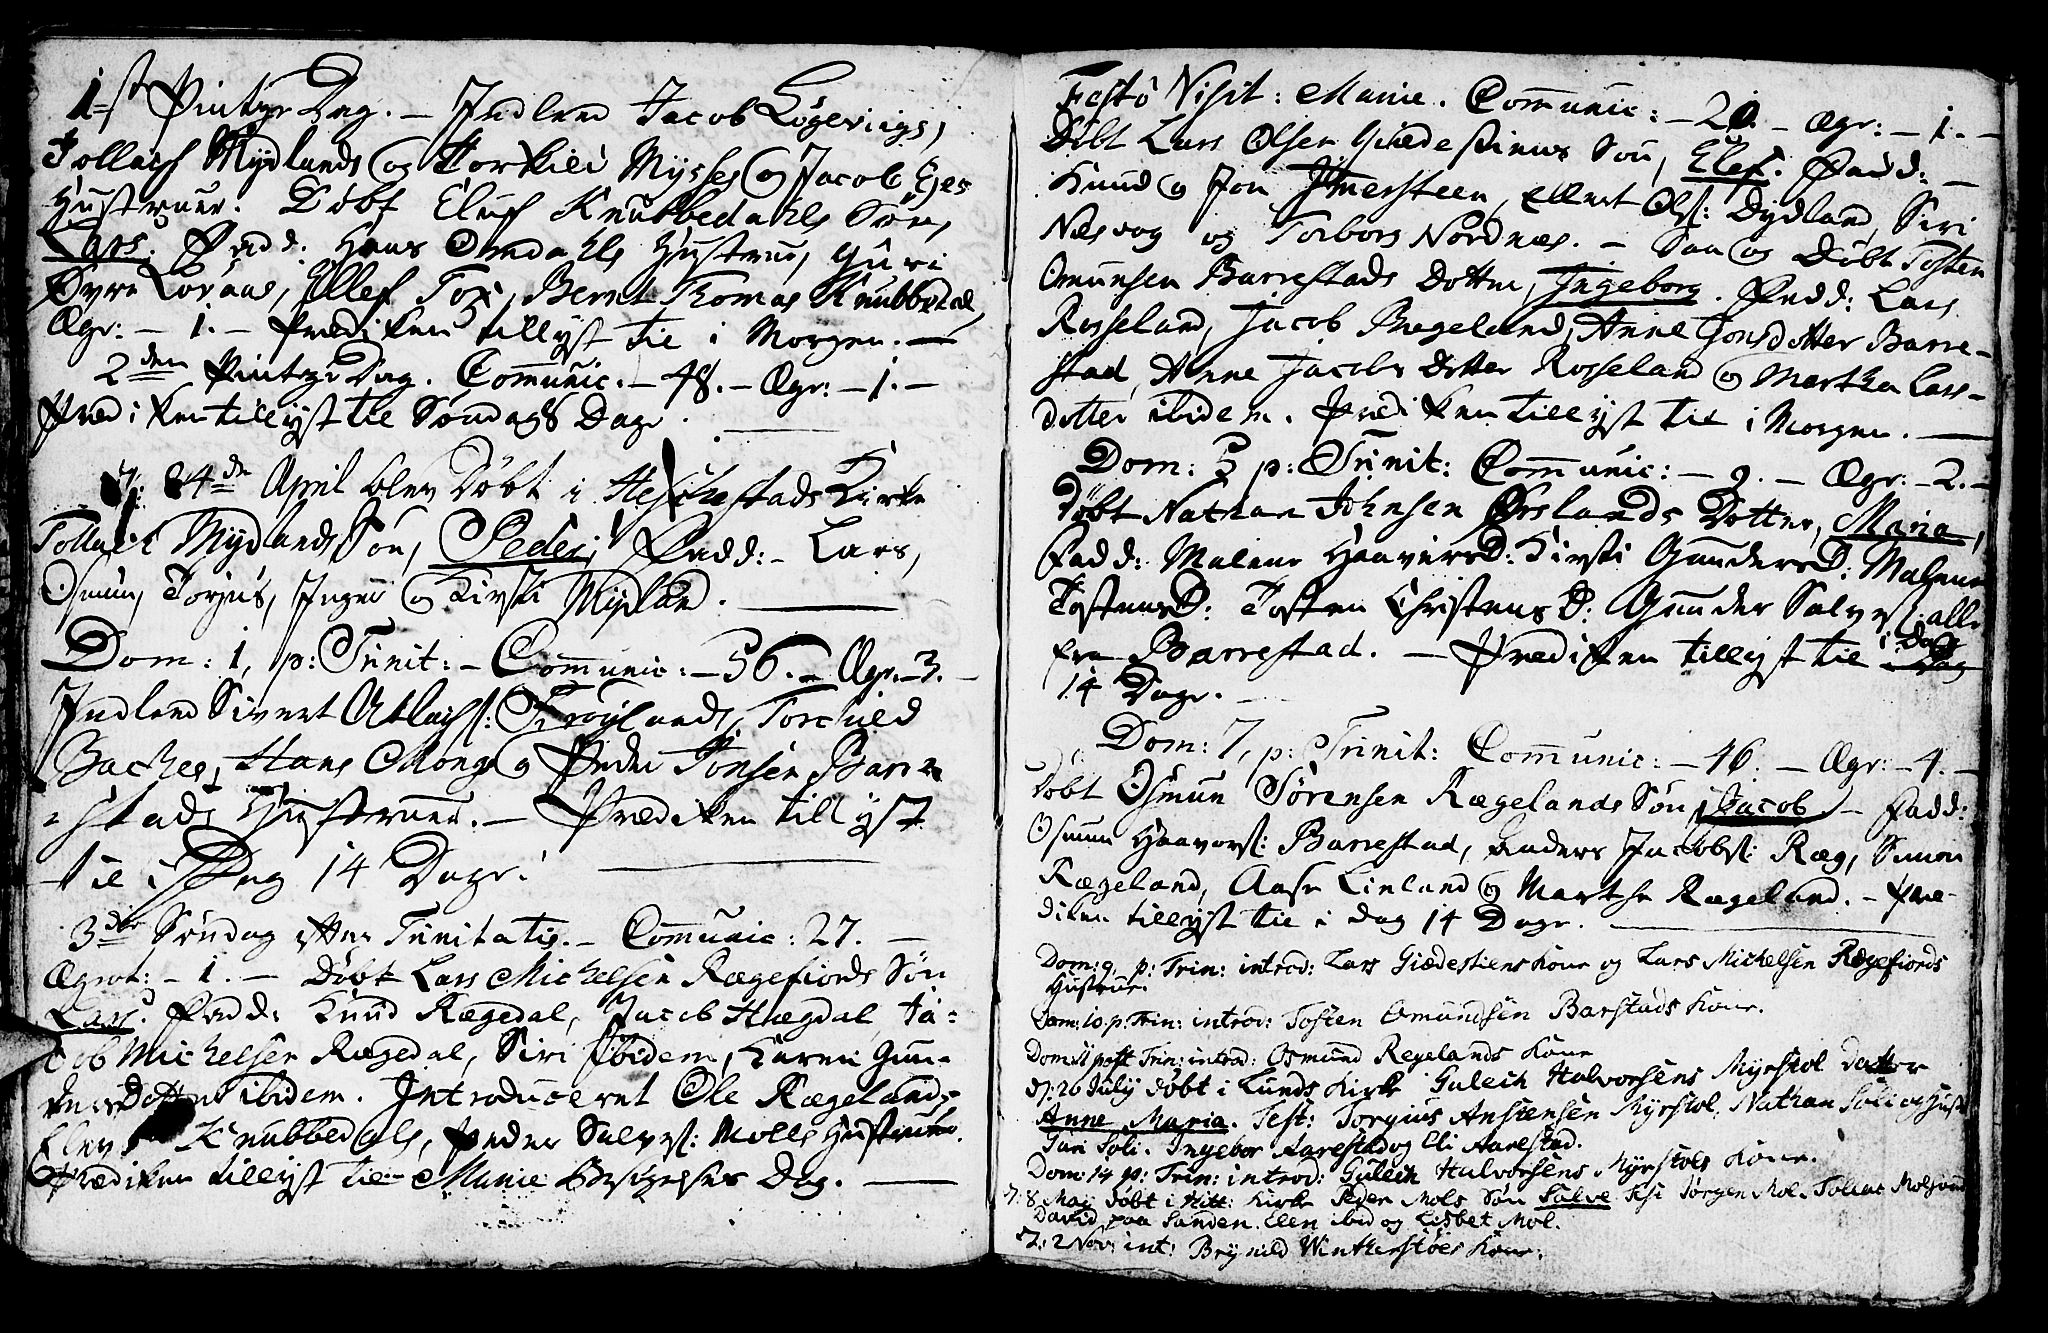 1ste Pintze Dag. – Indlend Jacob Løgeviigs,
Tollach Mydlands og Torkild Mysses og Jacob Eges
Hustruer. Døbt Eluf Knubbedahls Søn,
Lars. Fadd: Hans Omdahls Hustrue, Guri
Øvre Loraas, Ellef Tox, Bernt Thomas Knubbedal,
Ægr: – 1. – Prediken tillyst til i Morgen. –
2den Pintze Dag. Communic. – 48. – Ægr: – 1. –
Prediken tillyst til Søndags Dage.
D: 24de April blev Døbt i Heskestads Kirke
Tollach Mydlands Søn, Peder, Fadd: – Lars,
Osmun, Torjus, Inger og Kirsti Mydland.
Dom: 1, p: Trinit: – Communic: – 56. – Ægr. – 3. –
Indlend Sivert Atlachs: Frøylands, Torchild
Baches, Hans Mong og Peder Jonsen Barre
stads Hustruer. – Prædiken tillyst
til i Dag 14 Dage.
3die Søndag efter Trinitatis. – Communic: 27. –
Ægrot: – 1. – Døbt Lars Michelsen Rægefiords Søn
Lars. Fadd: Knud Rægedal, Jacob Hægdal, Ja-
cob Michelsen Rægedal, Siri Ibidem, Karen Gun-
dersDotter ibidem. Introduceret Ole Rægelands,
Elev Knubbedals, Peder Salves: Molls Hustruer.
Prædiken tillyst til Mariæ Besøgelses Dag. –
Festo Visit: Mariæ. Communic: – 20. – Ægr: – 1. –
Døbt Lars Olsen Giædestiens Søn, Elef. Fadd: –
Knud og Jon Immersteen, Ellert Ols: Dydland, Siri
Nesvog og Torbor Nordnes. – Saa og Døbt Tosten
Omunsen Barrestads Dotter, Ingeborg. Fadd: Lars
Rosseland, Jacob Bregeland, Anne Jonsdotter Barre-
stad, Anne Jacobs Dotter Rosseland og Martha Lars-
dotter ibidem. Prediken tillyst til i Morgen. –
Dom: 5 p: Trinit: Communic: – 9. – Ægr: – 2. –
Døbt Nathan Johnsen Ørslands Dotter, Maria,
Fadd: Malene HaaversD: Kirsti GundersD: Malene
TostensD: Tosten Christens D: Gunder Salves: alle
fra Barrestad. – Prediken tillyst til i Dag
14 Dage.
Dom: 7, p: Trinit: Communic: – 46. – Ægr: – 4. –
Døbt Osmun Sørensen Rægelands Søn, Jacob – Fadd:
Osmun Haavors: Barrestad, Anders Jacobs: Ræg, Simon
Rægeland, Aase Linland og Marthe Rægeland. – Præ-
diken tillyst til i dag 14 Dage.
Dom: 9. p: Trin: introd: Lars Giædestiens Kone og Lars Michelsen Rægefiords
Hustrue.
Dom: 10. p: Trin: introd: Tosten Omundsen Barstads Kone.
Dom: 11 post Trin: introd: Osmund Regelands Kone
D: 26 July døbt i Lunds Kirke Guleich Halvorsens Myrstol Datter
Anne Maria. Test: Torgius Anstensen Myrstol, Nathan Soli og Hust:
Guri Soli. Ingebor Aarestad og Eli Aarestad.
Dom: 14 p: Trin: introd: Guleich Halvorsens Myrstols Kone.
D: 8 Maij døbt i Hitt: Kirke Peder Mols Søn Salve Test Jørgen Mol. Tollac Molsund
David paa Sanden. Elen ibid og Lisbet Mol.
D: 2 Nov: int: Brynild Wintherstøes Kone.